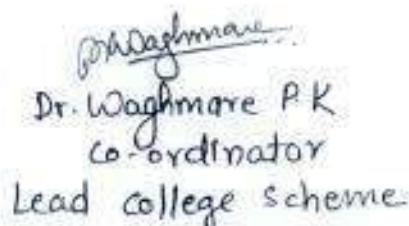 PKWaghmare
Dr. Waghmare P.K
Co-ordinator
Lead college scheme